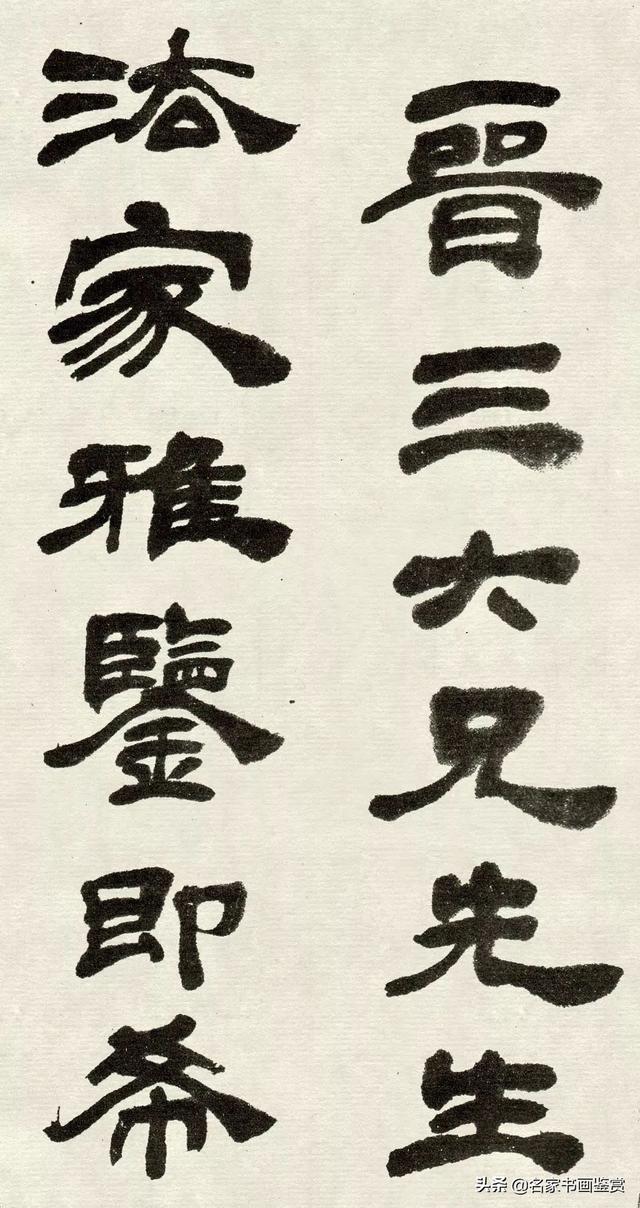 晉三六兄先生
法家雅鑒即希
头条 @名家书画鉴赏